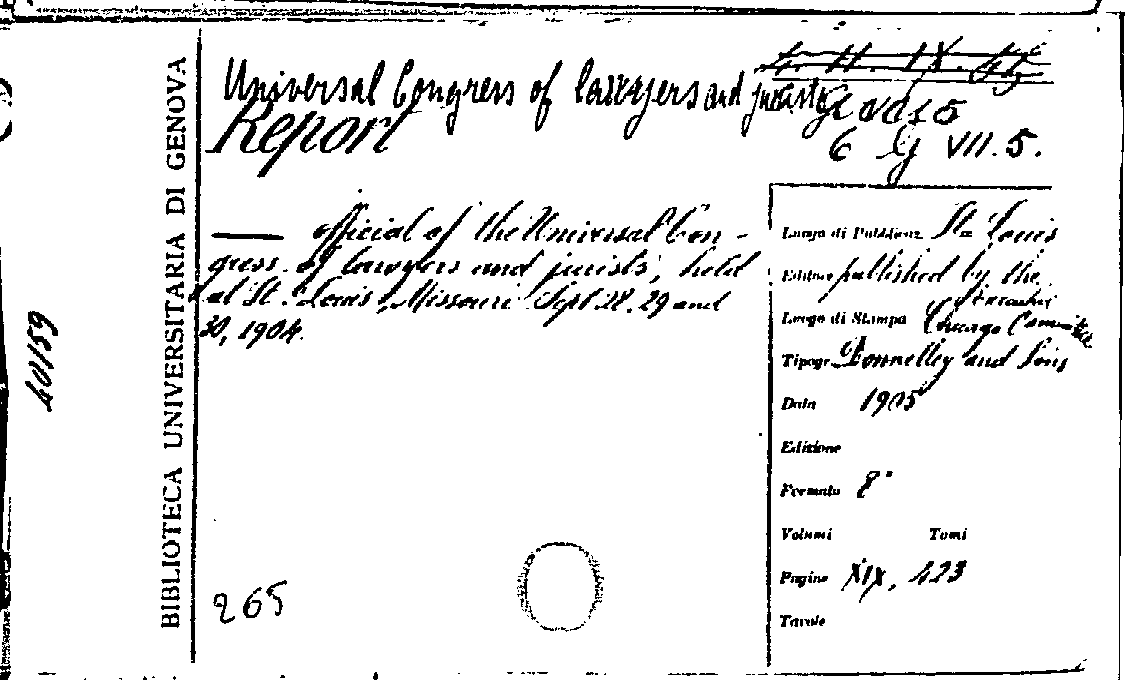 Universal Congress of lawyers and jurists
Report
6 G VII. 5.
— official of the Universal Con-
gress of lawyers and jurists, held
at St. Louis, Missouri Sept. 28, 29 and
30, 1904.
Luogo di Pubblicaz. St. Louis
Editore published by the
executive
Committee
Luogo di Stampa Chicago
Tipogr. Donnelley and Sons
Data 1905
Edizione
Formato 8°
Volumi Tomi
Pagine XIX, 423
Tavole
265
BIBLIOTECA UNIVERSITARIA DI GENOVA
40159